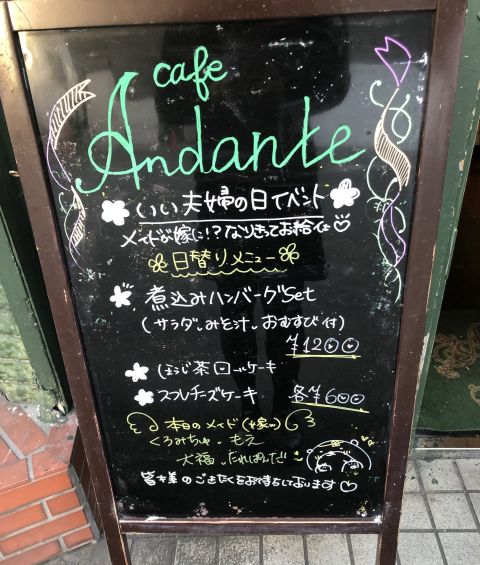 cafe
Andante
いい夫婦の日イベント
メイドが嫁に!?なりきってお給仕♡
日替りメニュー
煮込みハンバーグSet
(サラダ、みそ汁、おむすび付)
¥1200
ほうじ茶ロールケーキ
スフレチーズケーキ 各¥600
本日のメイド(嫁♡)
くろみちゃ、もえ
大福、たれぱんだ
皆様のごきたくをお待ちしております♡